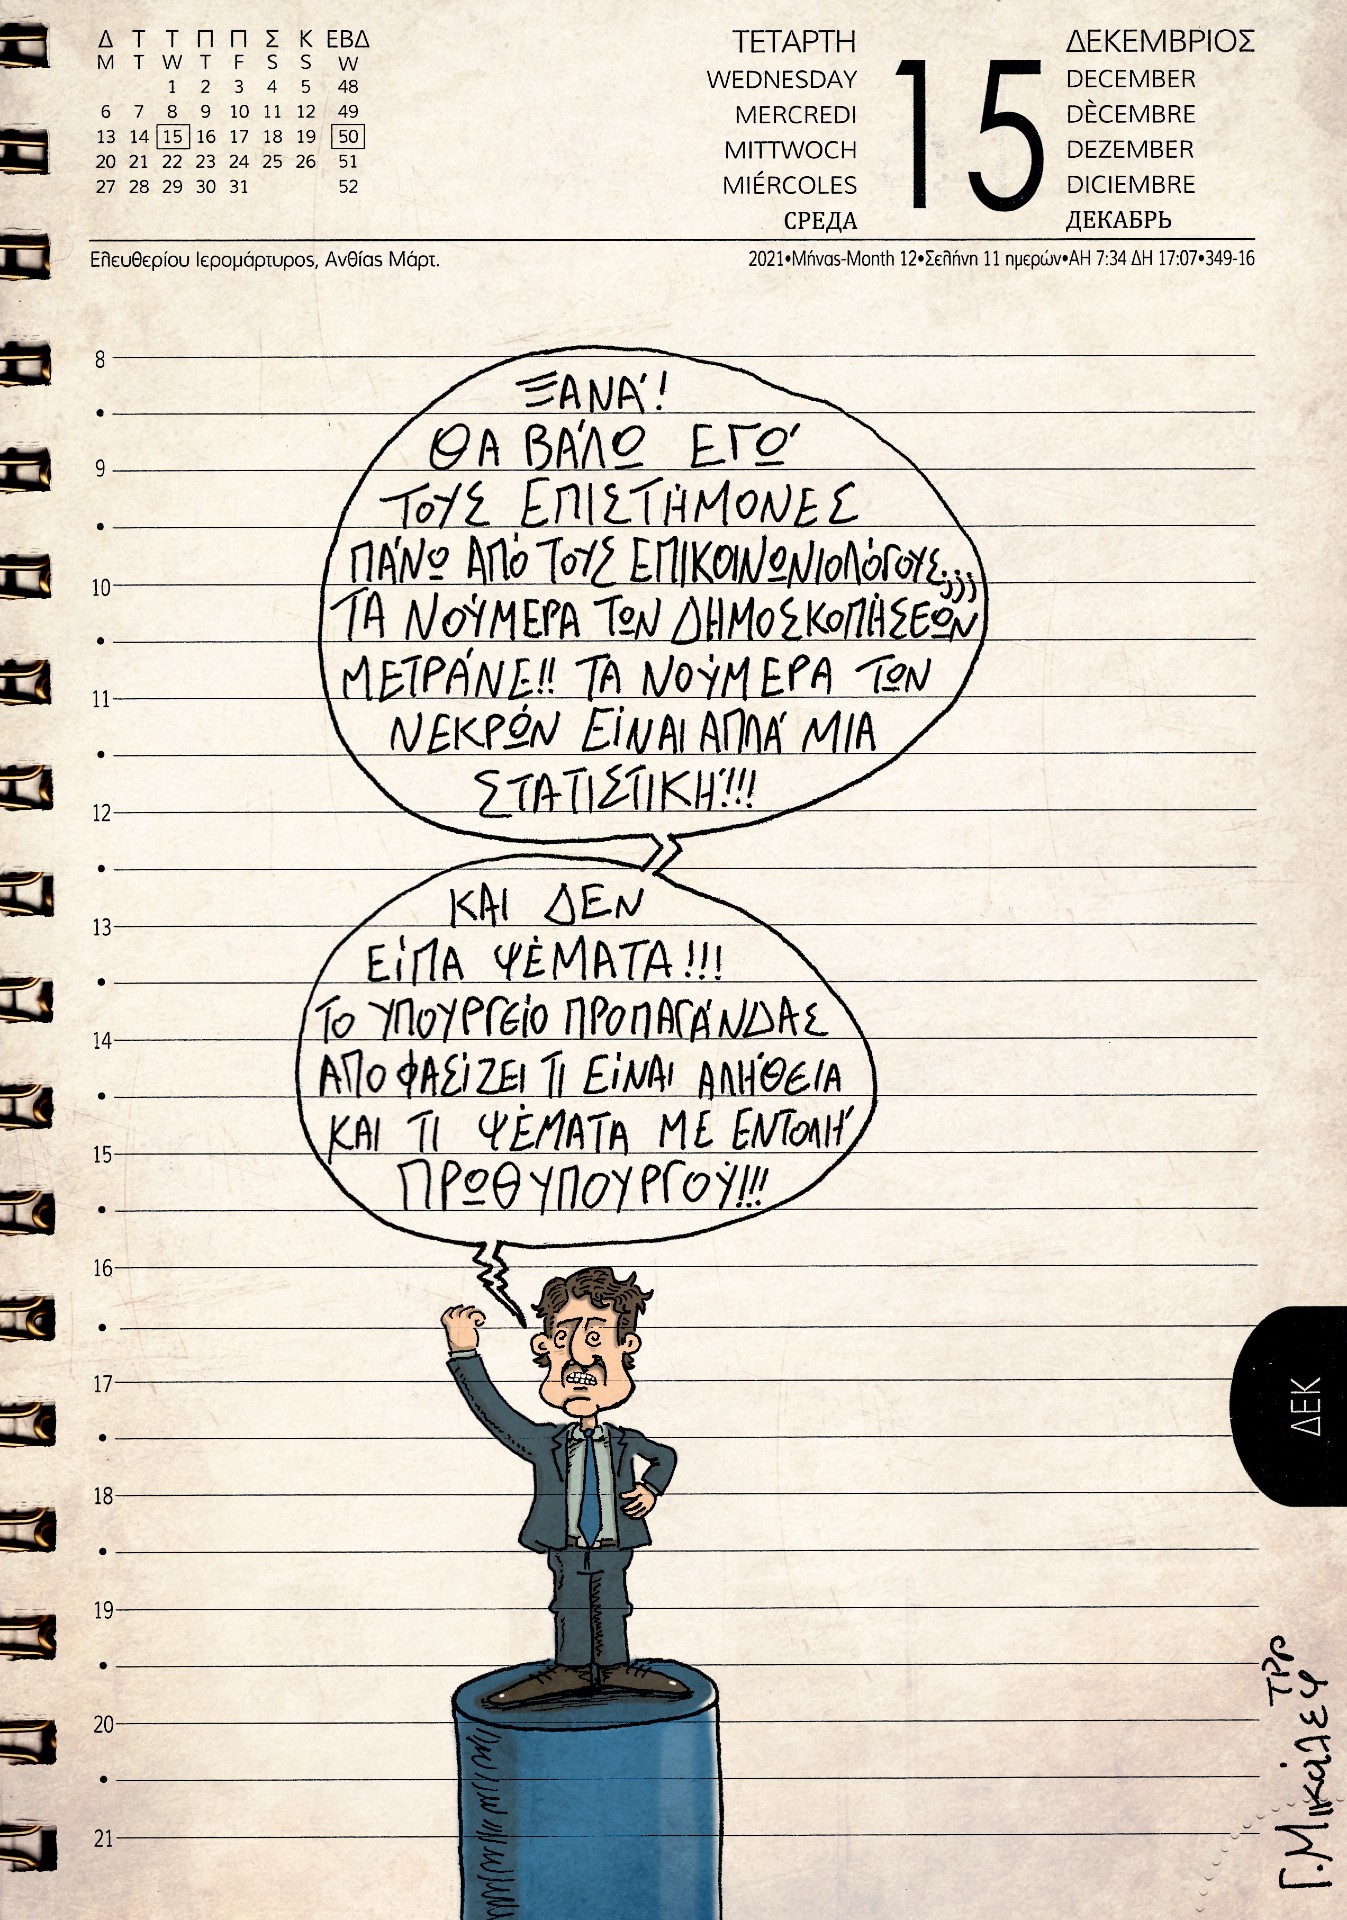 Δ Τ Τ Π Π Σ Κ ΕΒΔ
M T W T F S S W
1 2 3 4 5 48
6 7 8 9 10 11 12 49
13 14 15 16 17 18 19 50
20 21 22 23 24 25 26 51
27 28 29 30 31 52
ΤΕΤΑΡΤΗ
WEDNESDAY
MERCREDI
MITTWOCH
MIÉRCOLES
СРЕДА
15
ΔΕΚΕΜΒΡΙΟΣ
DECEMBER
DÈCEMBRE
DEZEMBER
DICIEMBRE
ДЕКАБРЬ
Ελευθερίου Ιερομάρτυρος, Ανθίας Μάρτ.
2021•Μήνας-Month 12•Σελήνη 11 ημερών•ΑΗ 7:34 ΔΗ 17:07•349-16
8
9
10
11
12
13
14
15
16
17
18
19
20
21
ΞΑΝΑ!
ΘΑ ΒΆΛΩ ΕΓΏ
ΤΟΥΣ ΕΠΙΣΤΉΜΟΝΕΣ
ΠΆΝΩ ΑΠΌ ΤΟΥΣ ΕΠΙΚΟΙΝΩΝΙΟΛΌΓΟΥΣ;;;
ΤΑ ΝΟΎΜΕΡΑ ΤΩΝ ΔΗΜΟΣΚΟΠΉΣΕΩΝ
ΜΕΤΡΆΝΕ!! ΤΑ ΝΟΎΜΕΡΑ ΤΩΝ
ΝΕΚΡΏΝ ΕΊΝΑΙ ΑΠΛΆ ΜΙΑ
ΣΤΑΤΙΣΤΙΚΉ!!!
ΚΑΙ ΔΕΝ
ΕΊΠΑ ΨΈΜΑΤΑ!!!
ΤΟ ΥΠΟΥΡΓΕΊΟ ΠΡΟΠΑΓΆΝΔΑΣ
ΑΠΟΦΑΣΊΖΕΙ ΤΙ ΕΊΝΑΙ ΑΛΉΘΕΙΑ
ΚΑΙ ΤΙ ΨΈΜΑΤΑ ΜΕ ΕΝΤΟΛΉ
ΠΡΩΘΥΠΟΥΡΓΟΎ!!!
ΔΕΚ
Γ. Μικάλεφ